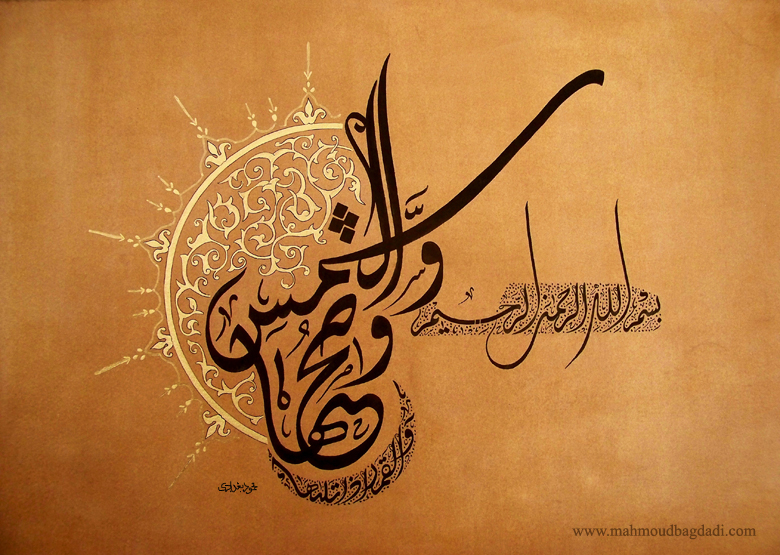 بسم الله الرحمن الرحيم
والشمس
وضحيها
والقمر إذا تليها
محمود بغدادي
www.mahmoudbagdadi.com